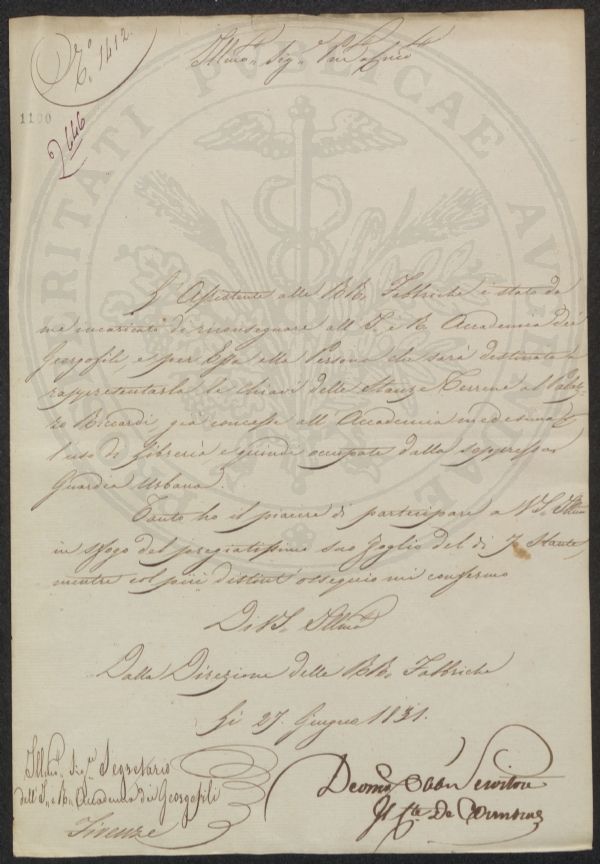 N.o 1412.
1100
646
Illmo Sig.e
L'Assistente alle RR. Fabbriche è stato da
me incaricato di riconsegnare all'I. e R. Accademia dei
Georgofili e per Essa alla Persona che sarà destinata a
rappresentarla le Chiavi delle Stanze Terrene al Palaz-
zo Riccardi, già concesse all'Accademia medesima
l'uso di Libreria e quindi occupate dalla soppressa
Guardia Urbana.
Tanto ho il piacere di partecipare a VS. Illma
in sfogo del pregiatissimo suo Foglio del dì 7 Stante,
mentre col più distinto ossequio mi confermo
Di VS. Illma
Dalla Direzione delle RR. Fabbriche
Li 27. Giugno 1831.
Illmo Sig.re Segretario
dell'I. e R. Accademia dei Georgofili
Firenze
Devmo Obbl Servitore
PUBLICAE